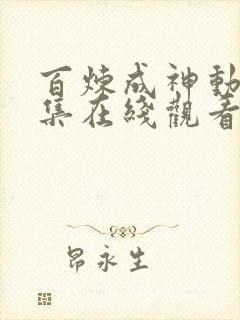 百煉成神動
集在綫觀看
昂永生